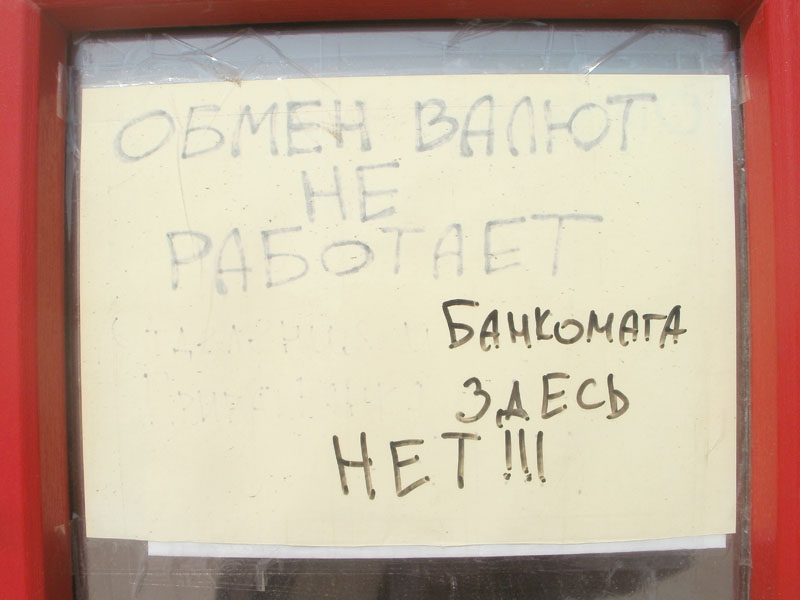 ОБМЕН ВАЛЮТ
НЕ
РАБОТАЕТ
БАНКОМАТА
ЗДЕСЬ
НЕТ!!!